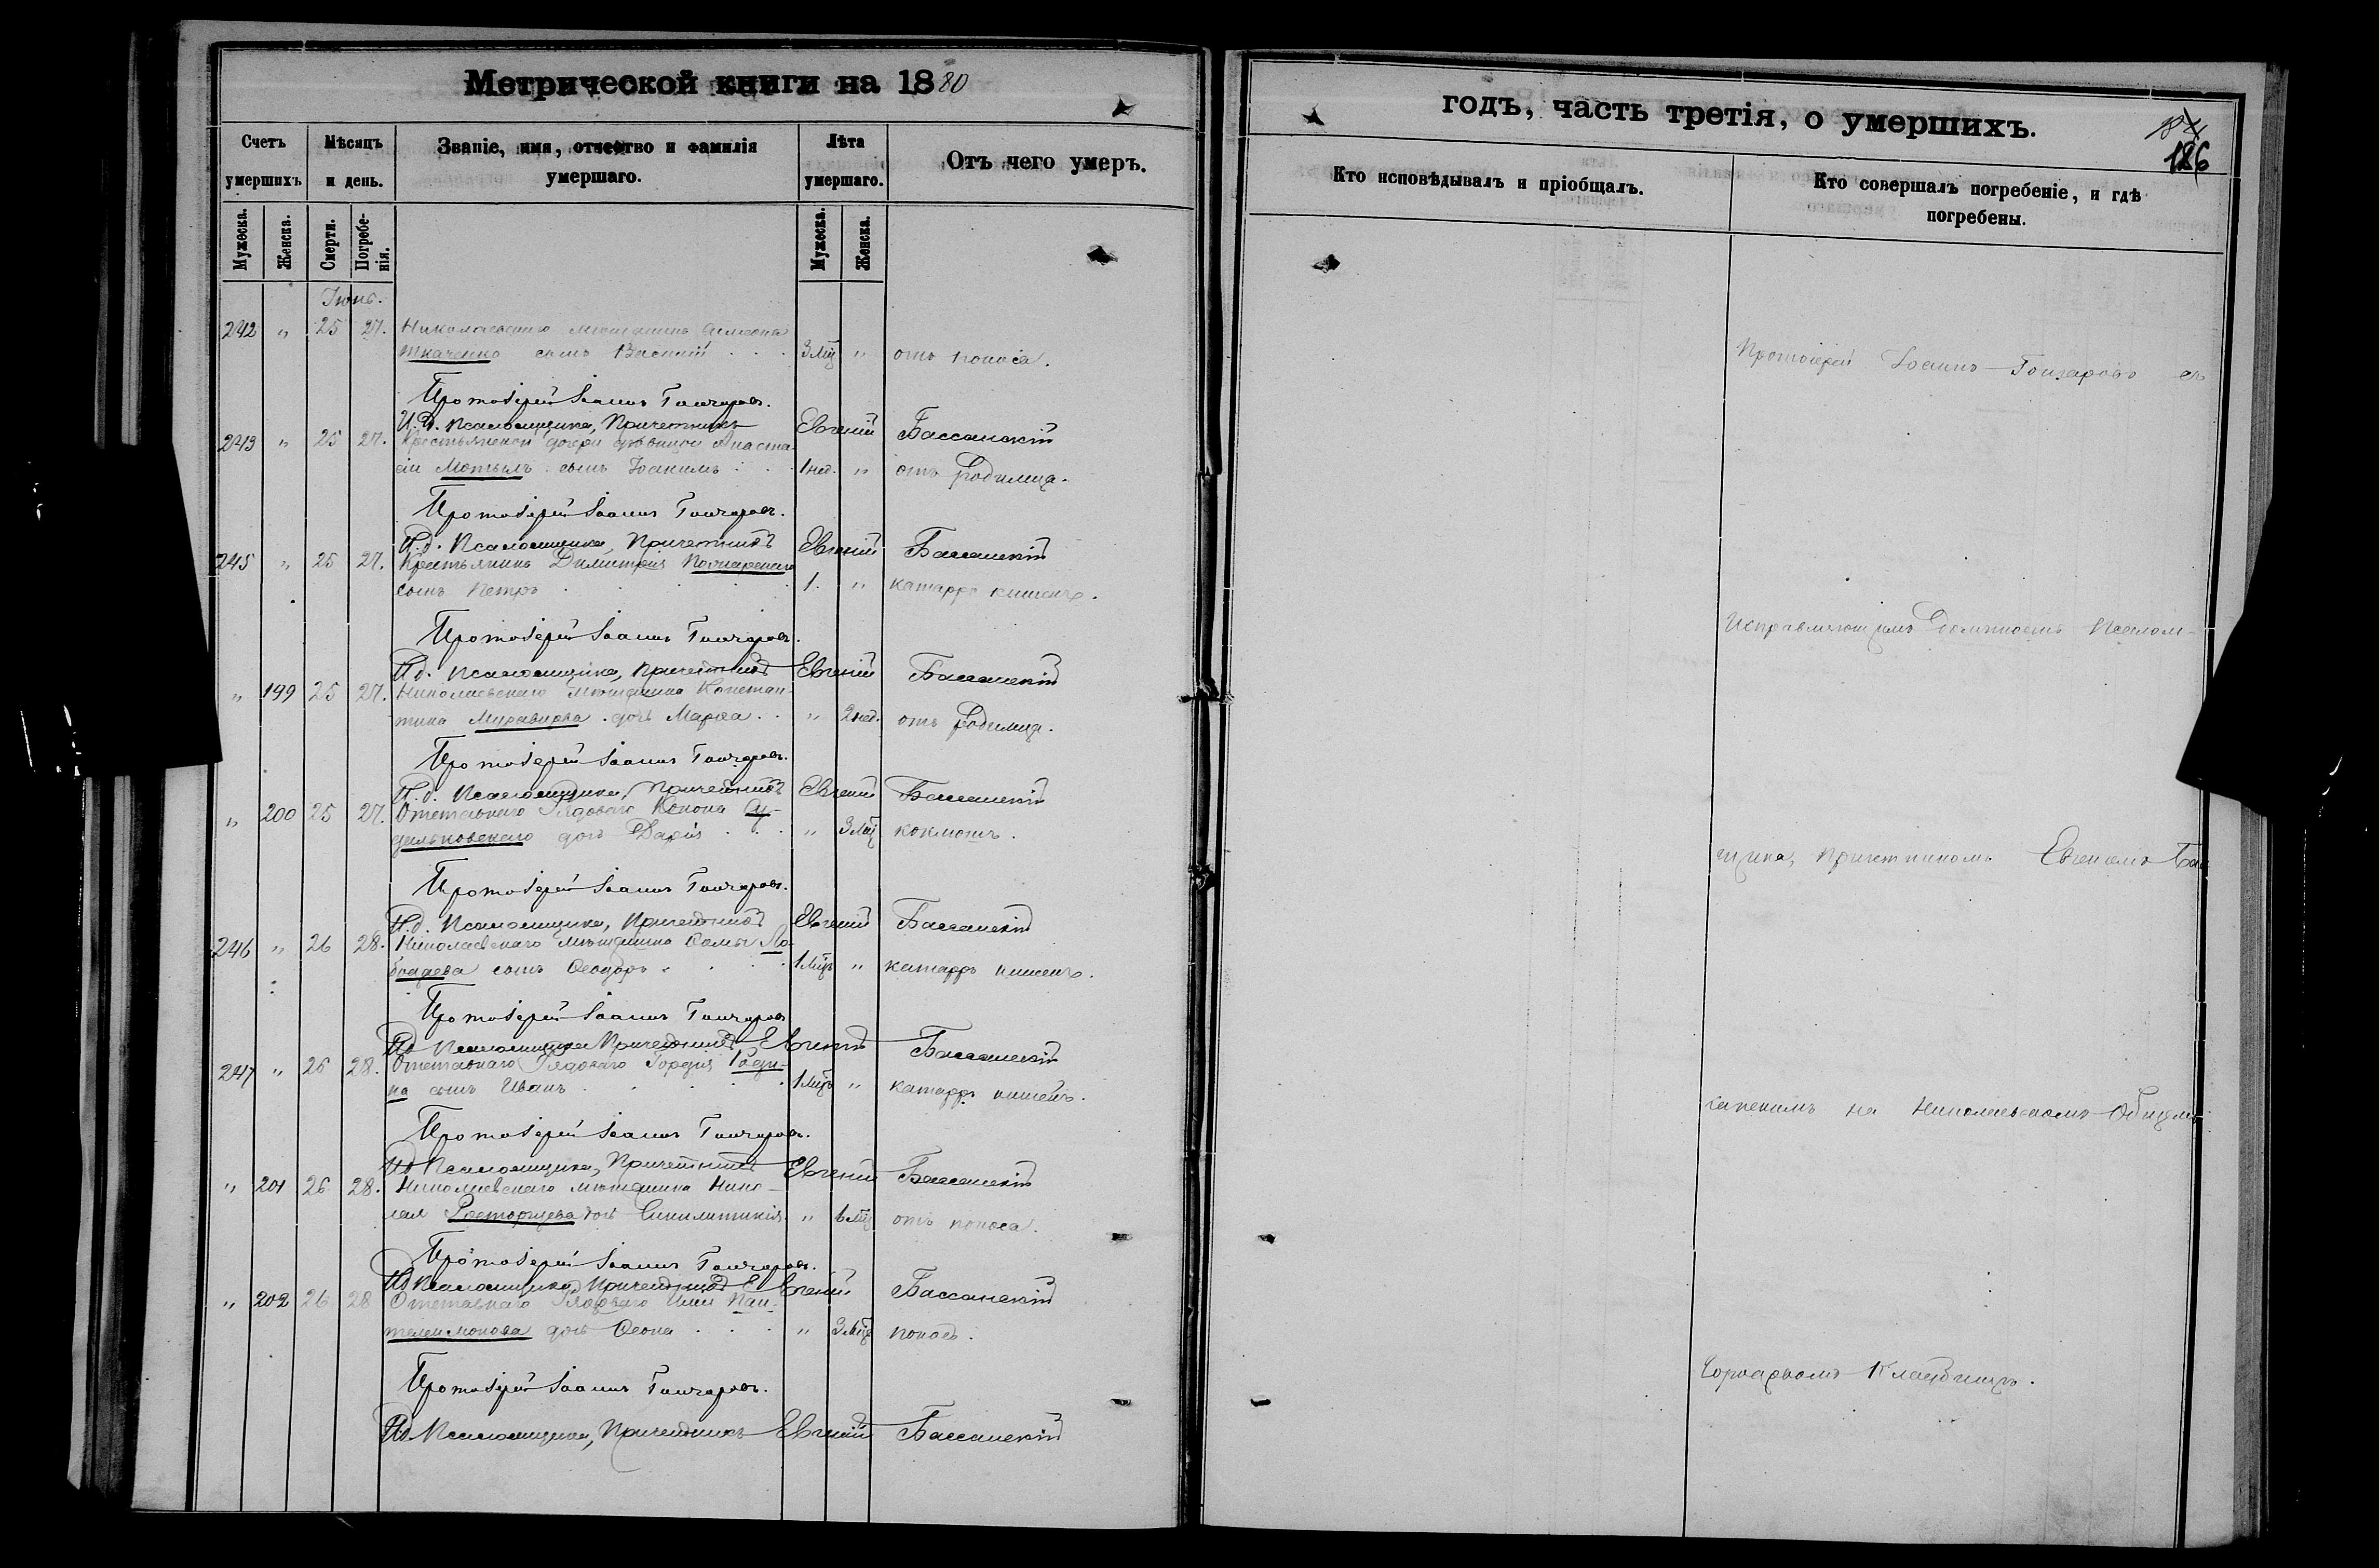 Метрической книги на 1880
Счетъ умершихъ
Мѣсяцъ и день.
Званіе, имя, отчество и фамилія умершаго.
Лѣта умершаго.
Отъ чего умеръ.
Мужеска. Женска. Смерти. Погребенія. Мужеска. Женска.
Іюнь.
242 " 25 27. Николаевскаго мѣщанина Симеона
Ткаченко сынъ Василій . . . 3 мц " отъ поноса.
Протоіерей Іоаннъ Гончаровъ.
И.д. Псаломщика, Причетникъ Евгеній Бассанскій
243 " 25 27. Крестьянской дочери дѣвицы Анаста-
сіи сынъ Іоакимъ . . 1 нед. " отъ родимца.
Протоіерей Іоаннъ Гончаровъ.
И.д. Псаломщика, Причетникъ Евгеній Бассанскій
245 " 25 27. Крестьянина Димитрія
сынъ Петръ . . . 1. " катарръ кишекъ.
Протоіерей Іоаннъ Гончаровъ.
И.д. Псаломщика, Причетникъ Евгеній Бассанскій
" 199 25 27. Николаевскаго мѣщанина Констан-
тина дочь Марѳа . . " 2 нед. отъ родимца.
Протоіерей Іоаннъ Гончаровъ.
И.д. Псаломщика, Причетникъ Евгеній Бассанскій
" 200 25 27. Отставнаго Рядоваго Конона Су-
дилковскаго дочь Дарія . . . " 3 мц коклюшъ.
Протоіерей Іоаннъ Гончаровъ.
И.д. Псаломщика, Причетникъ Евгеній Бассанскій
246 " 26 28. Николаевскаго мѣщанина Ѳомы
сынъ Ѳеодоръ . . . 1 мцъ " катарръ кишекъ.
Протоіерей Іоаннъ Гончаровъ
И.д. Псаломщика Причетникъ Евгеній Бассанскій
247 " 26 28. Отставнаго Рядоваго Гордія
сынъ Иванъ . . . 1 мцъ " катарръ кишекъ.
Протоіерей Іоаннъ Гончаровъ.
И.д. Псаломщика, Причетникъ Евгеній Бассанскій
" 201 26 28. Николаевскаго мѣщанина Нико-
лая Расторгуева дочь Синклитикія " мц отъ поноса.
Протоіерей Іоаннъ Гончаровъ.
И.д. Псаломщика, Причетникъ Евгеній Бассанскій
" 202 26 28 Отставнаго Рядоваго Иліи Пан-
телеимонова дочь . . . " 3 мцъ поносъ.
Протоіерей Іоаннъ Гончаровъ.
И.д. Псаломщика, Причетникъ Евгеній Бассанскій
годъ, часть третія, о умершихъ.
186
Кто исповѣдывалъ и пріобщалъ.
Кто совершалъ погребеніе, и гдѣ погребены.
Протоіерей Іоаннъ Гончаровъ съ
Исправляющимъ Должность Псалом-
щика, Причетникомъ Евгеніемъ Бас
санскимъ на Николаевскомъ Общемъ
Городскомъ Кладбищѣ.